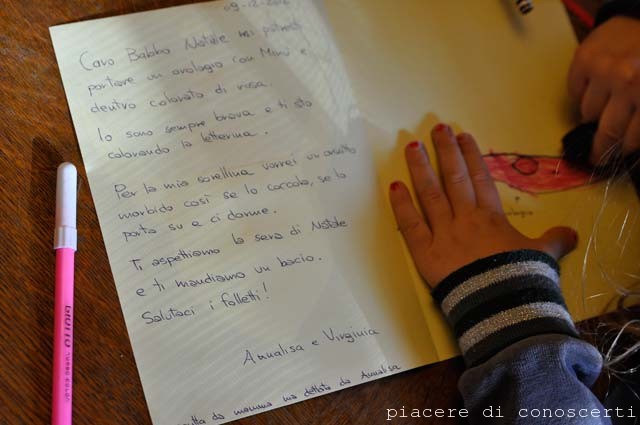 Caro Babbo Natale mi potresti
portare un orologio con Minù e
dentro colorato di rosa.
Io sono sempre brava e ti sto
colorando la letterina.
Per la mia sorellina vorrei un orsetto
morbido così se lo coccola, se lo
porta su e ci dorme.
Ti aspettiamo la sera di Natale
e ti mandiamo un bacio.
Salutaci i folletti!
Annalisa e Virginia
da mamma ma dettata da Annalisa
orologio
GIOTTO TURBO COLOR
piacere di conoscerti